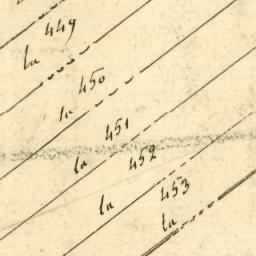 449
la
450
la
451
la
452
la
453
la